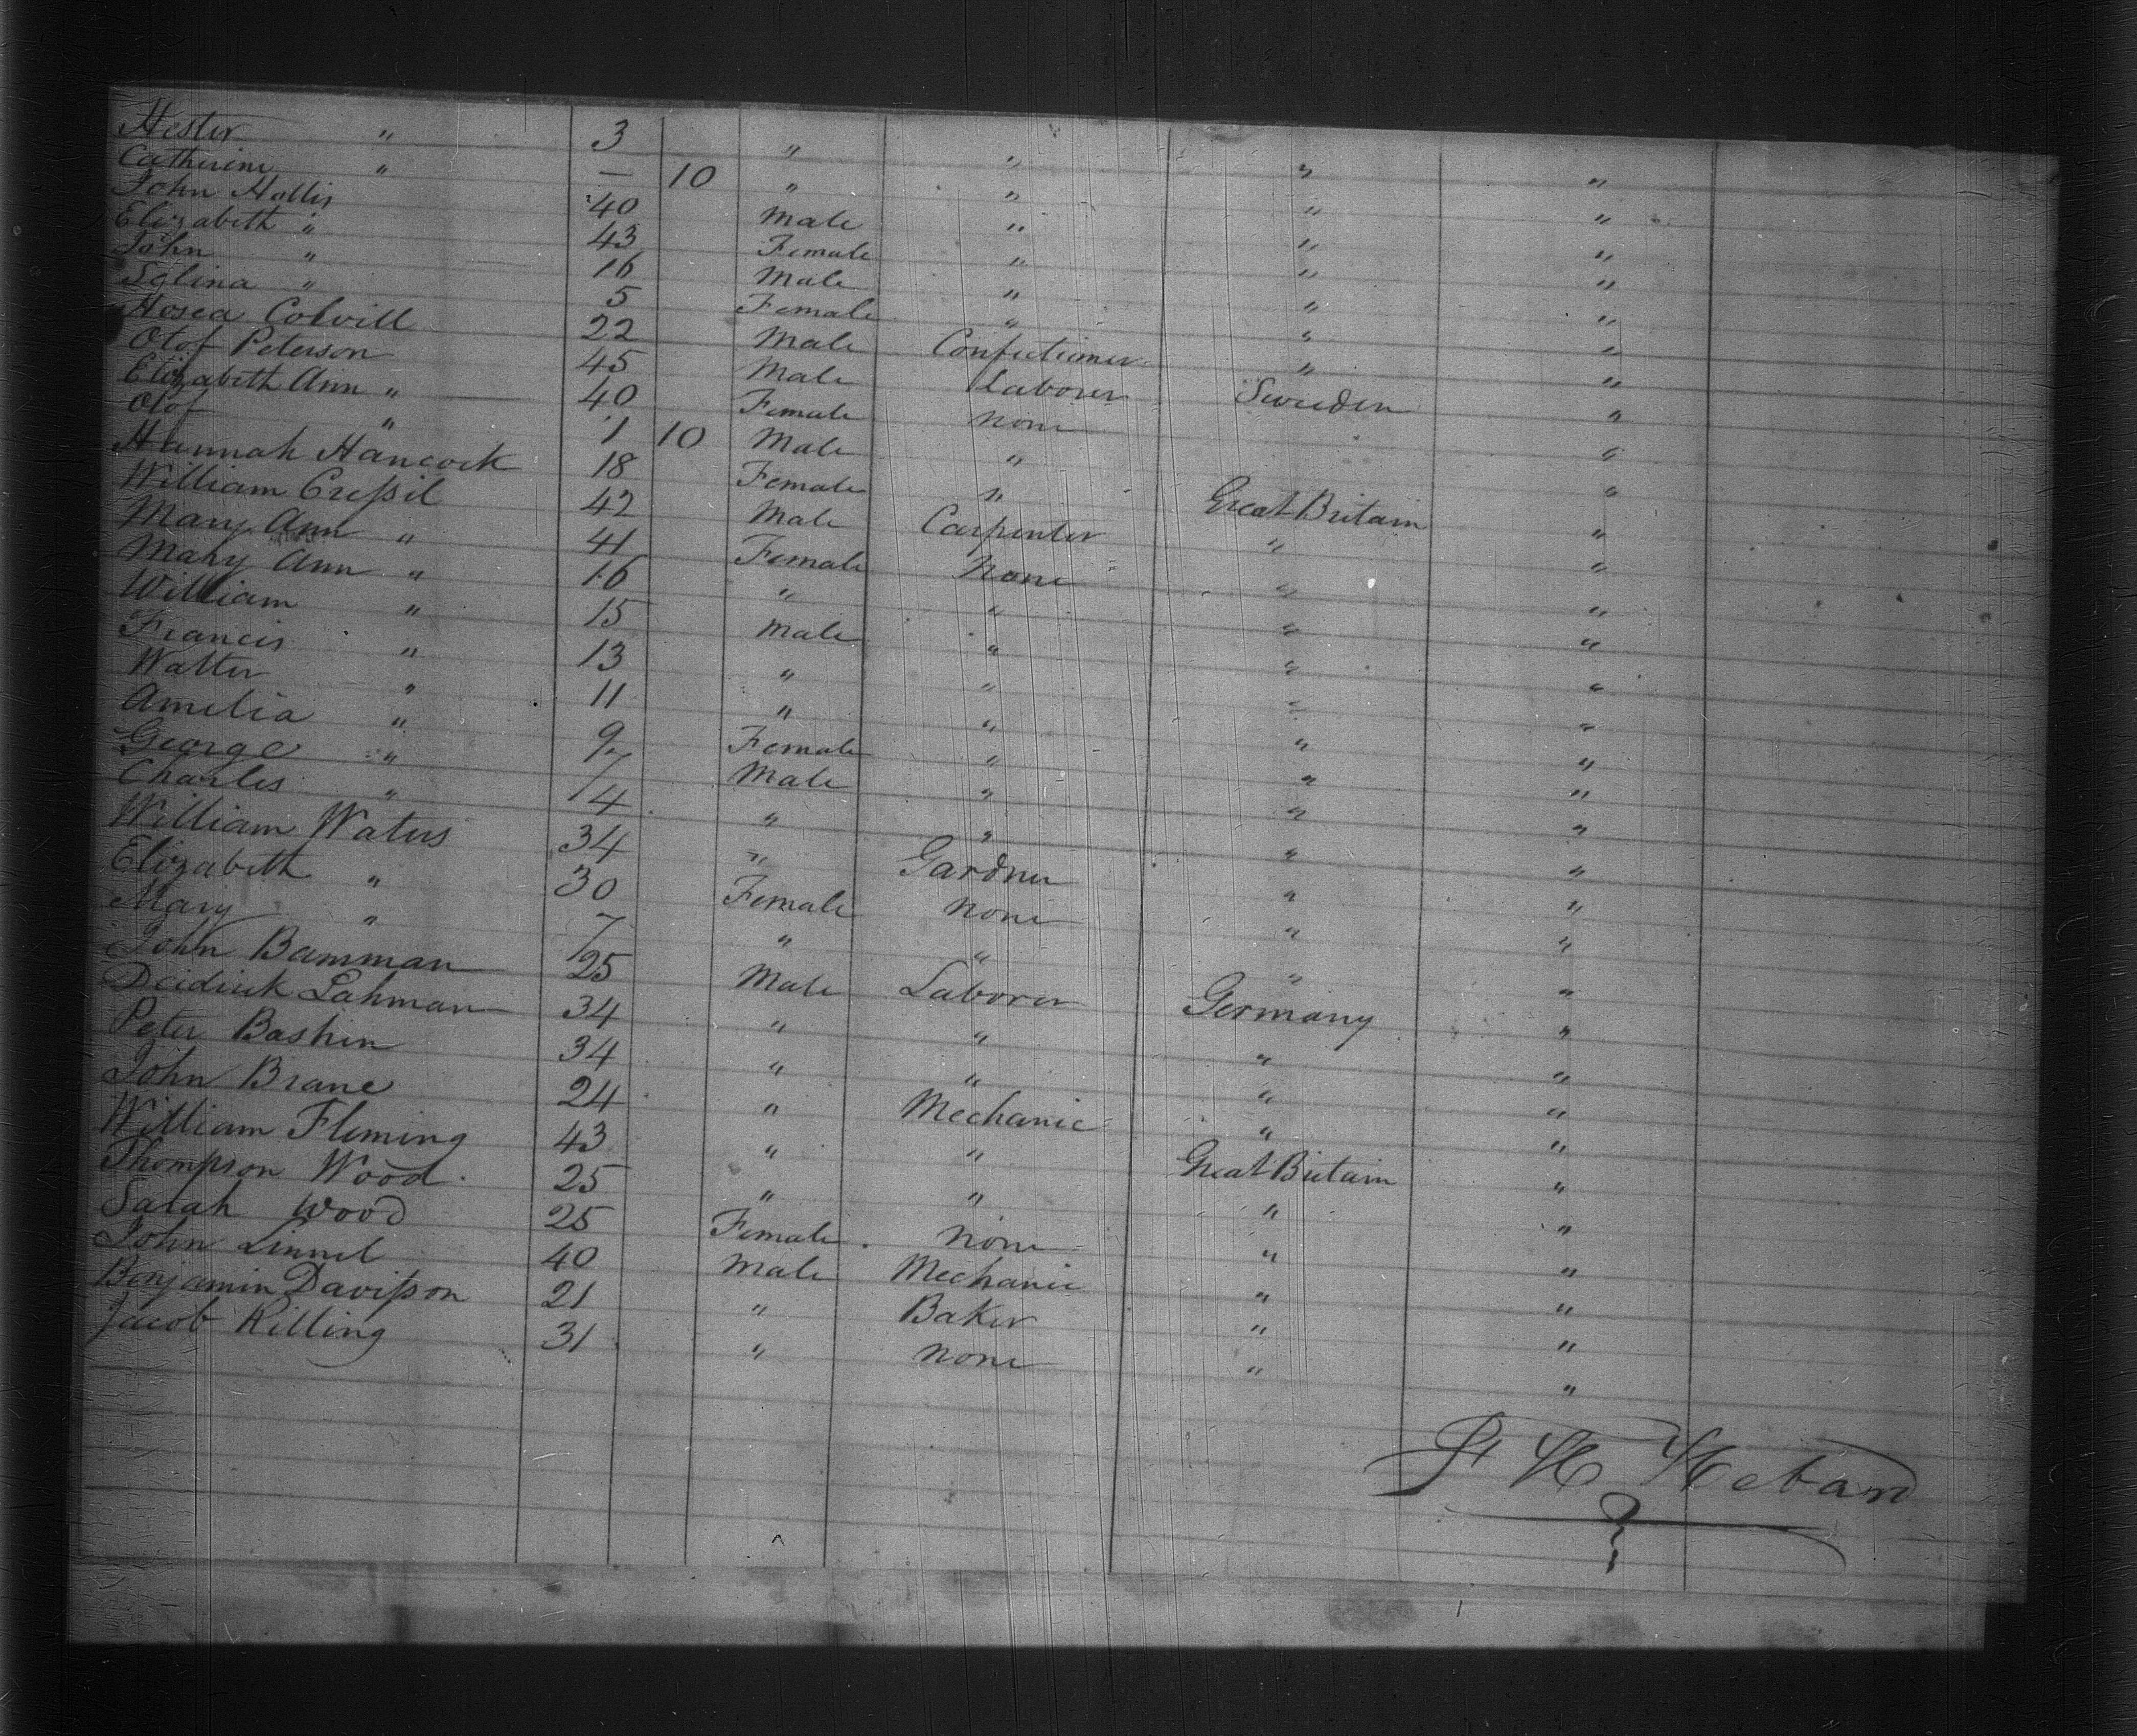 Hester " 3 " " " "
Catherine " — 10 " " " "
John Hollis 40 Male " " "
Elizabeth " 43 Female " " "
John " 16 Male " " "
Selina " 5 Female " " "
Hosea Colvill 22 Male Confectioner " "
Olof Peterson 45 Male laborer Sweden "
Elizabeth Ann " 40 Female none "
Olof " 1 10 Male " "
Hannah Hancock 18 Female " Great Britain "
William Cressil 42 Male Carpenter " "
Mary Ann " 41 Female None " "
Mary Ann " 16 " " " "
William " 15 Male " " "
Francis " 13 " " " "
Walter " 11 " " " "
Amelia " 9 Female " " "
George " 7 Male " " "
Charles " 4 " " " "
William Waters 34 " Gardner " "
Elizabeth " 30 Female none " "
Mary " 7 " " " "
John Bamman 25 Male Laborer Germany "
Deidrick Lahman 34 " " " "
Peter Bashin 34 " " " "
John Brane 24 " Mechanic " "
William Fleming 43 " " Great Britain "
Thompson Wood 25 " " " "
Sarah Wood 25 Female none " "
John Linnel 40 Male Mechanic " "
Benjamin Davisson 21 " Baker " "
Jacob Killing 31 " none " "
H Hebard